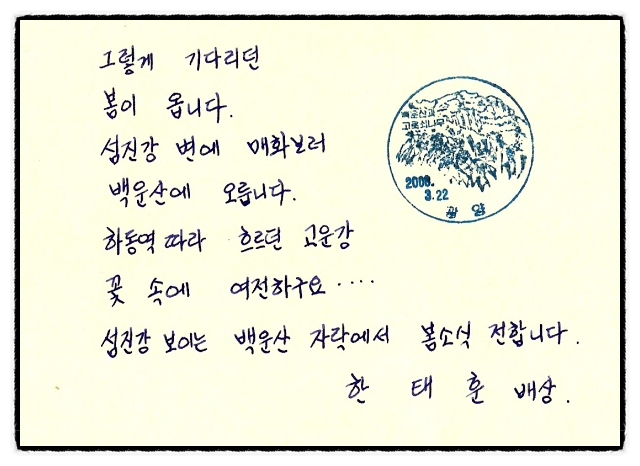 그렇게 기다리던
봄이 옵니다.
섬진강 변에 매화보러
백운산에 오릅니다.
하동역 따라 흐르던 고운강
꽃 속에 여전하구요....
섬진강 보이는 백운산 자락에서 봄소식 전합니다.
한 태 훈 배상.
백운산과
고로쇠나무
2008.
3.22
광양